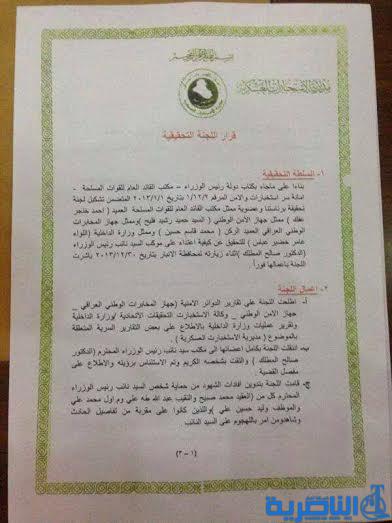 بسم الله الرحمن الرحيم
مديرية الاستخبارات العسكرية
قرار اللجنة التحقيقية
١- السلطة التحقيقية
بناءا على ماجاء بكتاب دولة رئيس الوزراء – مكتب القائد العام للقوات المسلحة -
امانة سر استخبارات والامن المرقم ١/٢/٢ بتاريخ ٢٠١٣/١/١ المتضمن تشكيل لجنة
تحقيقية برناستنا وعضوية ممثل مكتب القائد العام للقوات المسلحة العميد ( احمد خنجر
عفلك ) ممثل جهاز الامن الوطني ( السيد حميد رشيد فليح )وممثل جهاز المخابرات
الوطني العراقي العميد الركن ( محمد قاسم حسين ) وممثل وزارة الداخلية (اللواء
عامر خضير عباس ) للتحقيق عن كيفية اعتداء على موكب السيد نائب رئيس الوزراء
(الدكتور صالح المطلك )اثناء زيارته لمحافظة الانبار بتاريخ ٢٠١٣/١٢/٣٠ باشرت
اللجنة باعمالها فوراً
٢- اعمال اللجنة
أ- اطلعت اللجنة على تقارير الدوائر الامنية (جهاز المخابرات الوطني العراقي –
جهاز الامن الوطني – وكالة الاستخبارت التحقيقات الاتحادية /وزارة الداخلية
وتقرير عمليات وزارة الداخلية بالاطلاع على بعض التقارير السرية المتعلقة
بالموضوع ( مديرية الاستخبارت العسكرية ) .
ب- انتقلت اللجنة بكامل اعضائها الى مكتب سيد نائب رئيس الوزراء المحترم (الدكتور
صالح المطلك ) والتقت بشخصه الكريم وتم الاستئناس برؤيته والاطلاع على
مفصل القضية .
ج- قامت اللجنة بتدوين افادات الشهود من حماية شخص السيد نائب رئيس الوزراء
المحترم كل من (العقيد محمد صبيح والنقيب عبد الله طه علي وم.اول محمد علي
والموظف وليد حسين علي )واللذين كانوا على مقربة من تفاصيل الحادث
وشاهدومن امر بالهجوم على السيد النائب
(١ – ٣)
الناصرية